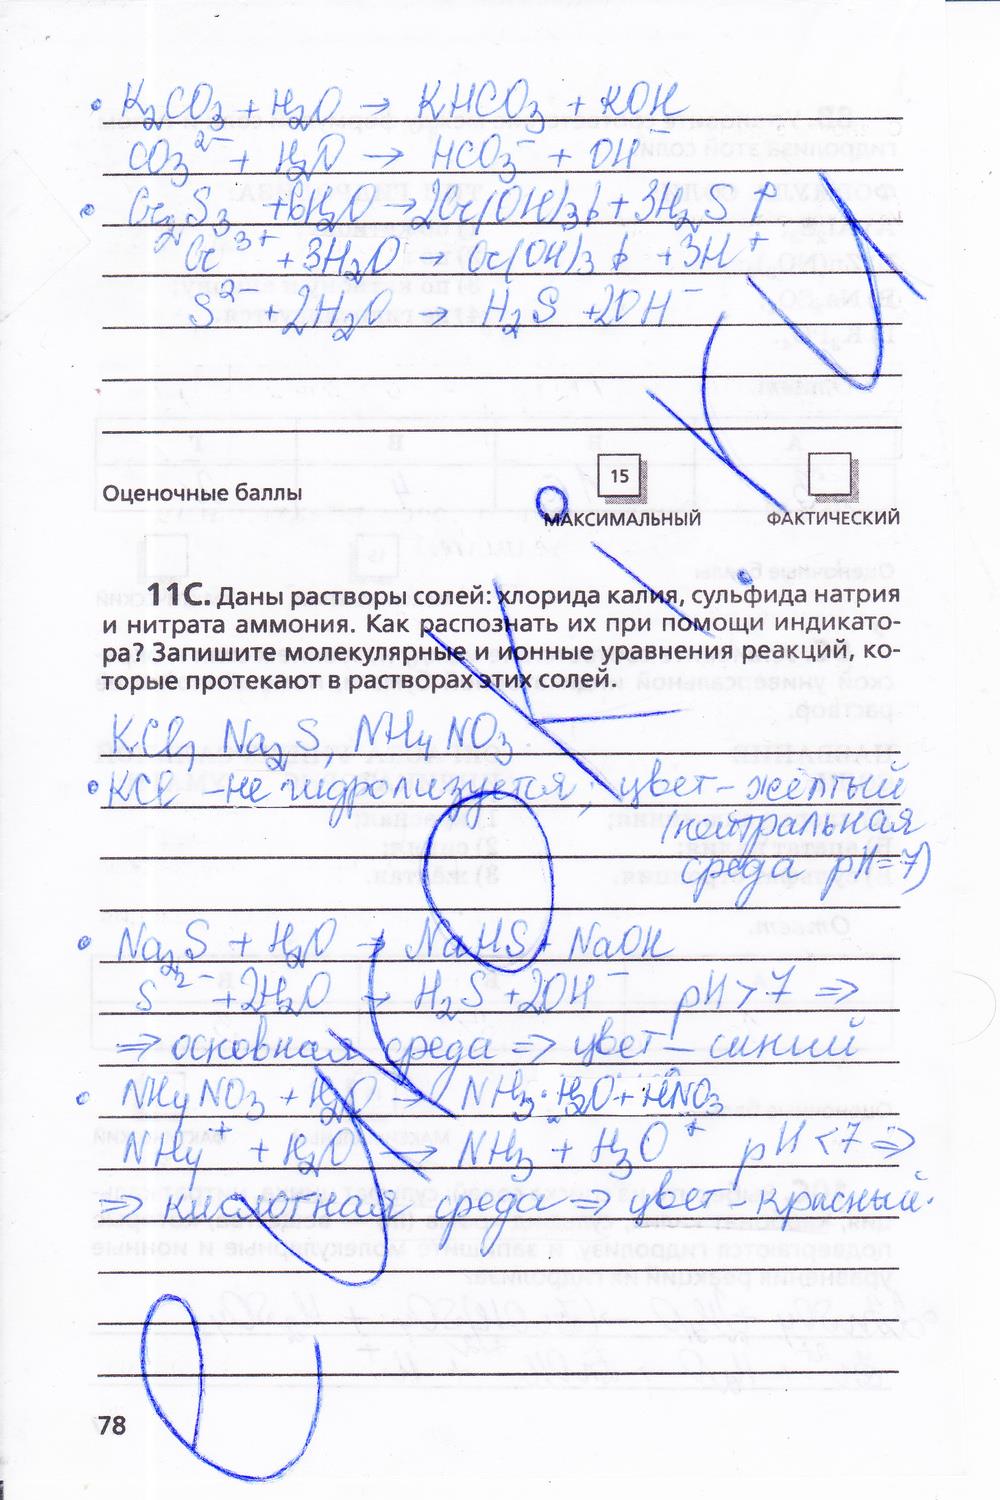 • K₂CO₃ + H₂O → KHCO₃ + KOH
CO₃²⁻ + H₂O → HCO₃⁻ + OH⁻
• Cr₂S₃ + 6H₂O → 2Cr(OH)₃↓ + 3H₂S↑
Cr³⁺ + 3H₂O → Cr(OH)₃↓ + 3H⁺
S²⁻ + 2H₂O → H₂S + 2OH⁻
Оценочные баллы
15
МАКСИМАЛЬНЫЙ ФАКТИЧЕСКИЙ
11С. Даны растворы солей: хлорида калия, сульфида натрия
и нитрата аммония. Как распознать их при помощи индикато-
ра? Запишите молекулярные и ионные уравнения реакций, ко-
торые протекают в растворах этих солей.
KCl, Na₂S, NH₄NO₃.
• KCl – не гидролизуется; цвет – жёлтый
(нейтральная
среда pH=7)
• Na₂S + H₂O → NaHS + NaOH
S²⁻ + 2H₂O → H₂S + 2OH⁻ pH > 7 ⇒
⇒ основная среда ⇒ цвет – синий
• NH₄NO₃ + H₂O → NH₃·H₂O + HNO₃
NH₄⁺ + H₂O → NH₃ + H₃O⁺ pH < 7 ⇒
⇒ кислотная среда ⇒ цвет – красный.
78